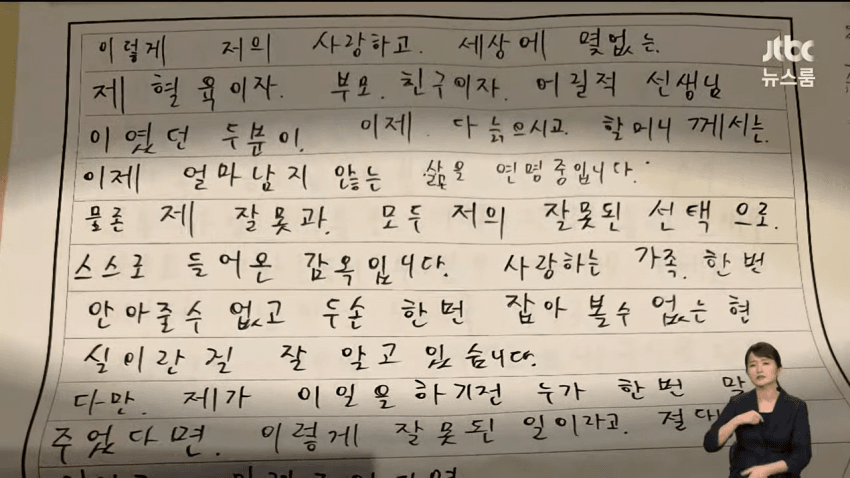 jtbc
뉴스룸
이렇게 저의 사랑하고. 세상에 몇없는.
제 혈육이자. 부모. 친구이자. 어릴적 선생님
이였던 두분이. 이제. 다 늙으시고. 할머니 께서는.
이제 얼마남지 않는 삶을 연명중입니다.
물론 제 잘못과. 모두 저의 잘못된 선택 으로.
스스로 들어온 감옥입니다. 사랑하는 가족. 한번
안아줄수 없고 두손 한번 잡아 볼수 없는 현
실이란걸 잘 알고 있습니다.
다만. 제가 이일을하기전 누가 한번
주었다면. 이렇게 잘못된 일이라고.